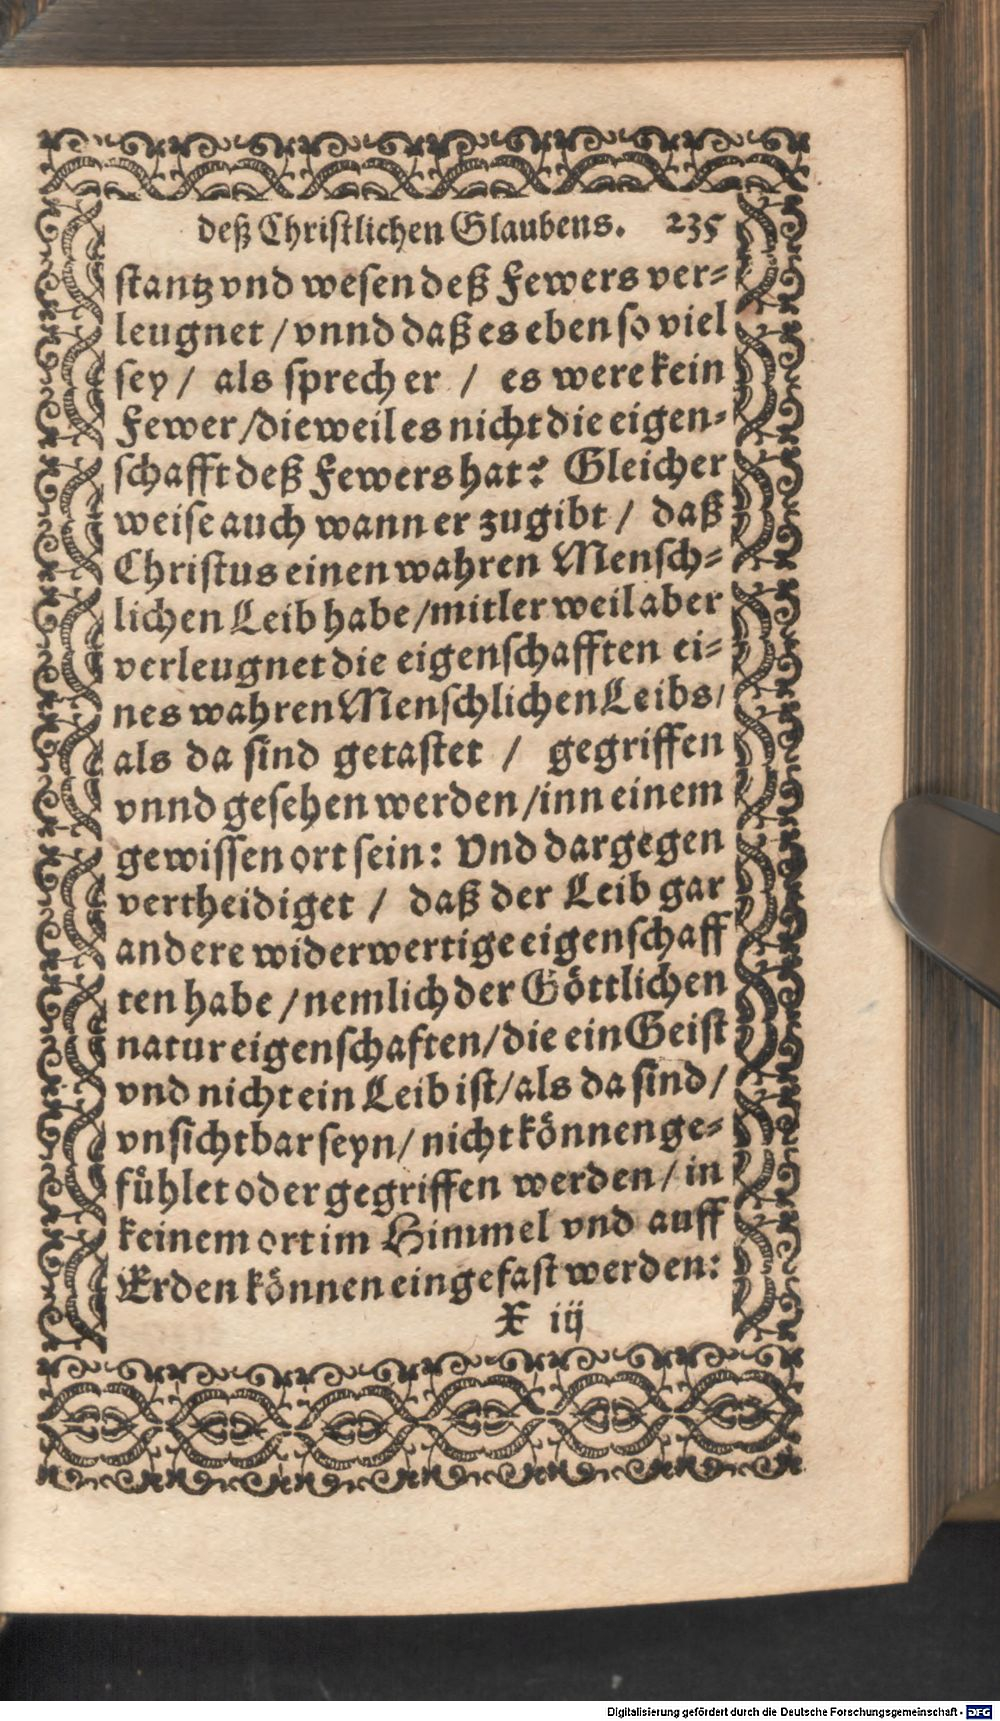 deß Christlichen Glaubens. 235
stantz vnd wesen deß Fewers ver-
leugnet / vnnd daß es eben so viel
sey / als sprech er / es were kein
Fewer / dieweil es nicht die eigen-
schafft deß Fewers hat? Gleicher
weise auch wann er zugibt / daß
Christus einen wahren Mensch-
lichen Leib habe / mitler weil aber
verleugnet die eigenschafften ei-
nes wahren Menschlichen Leibs /
als da sind getastet / gegriffen
vnnd gesehen werden / inn einem
gewissen ort sein: Vnd dargegen
vertheidiget / daß der Leib gar
andere widerwertige eigenschaff
ten habe / nemlich der Göttlichen
natur eigenschaften / die ein Geist
vnd nicht ein Leib ist / als da sind /
vnsichtbar seyn / nicht können ge-
fühlet oder gegriffen werden / in
keinem ort im Himmel vnd auff
Erden können eingefast werden:
X iij
Digitalisierung gefördert durch die Deutsche Forschungsgemeinschaft - DFG